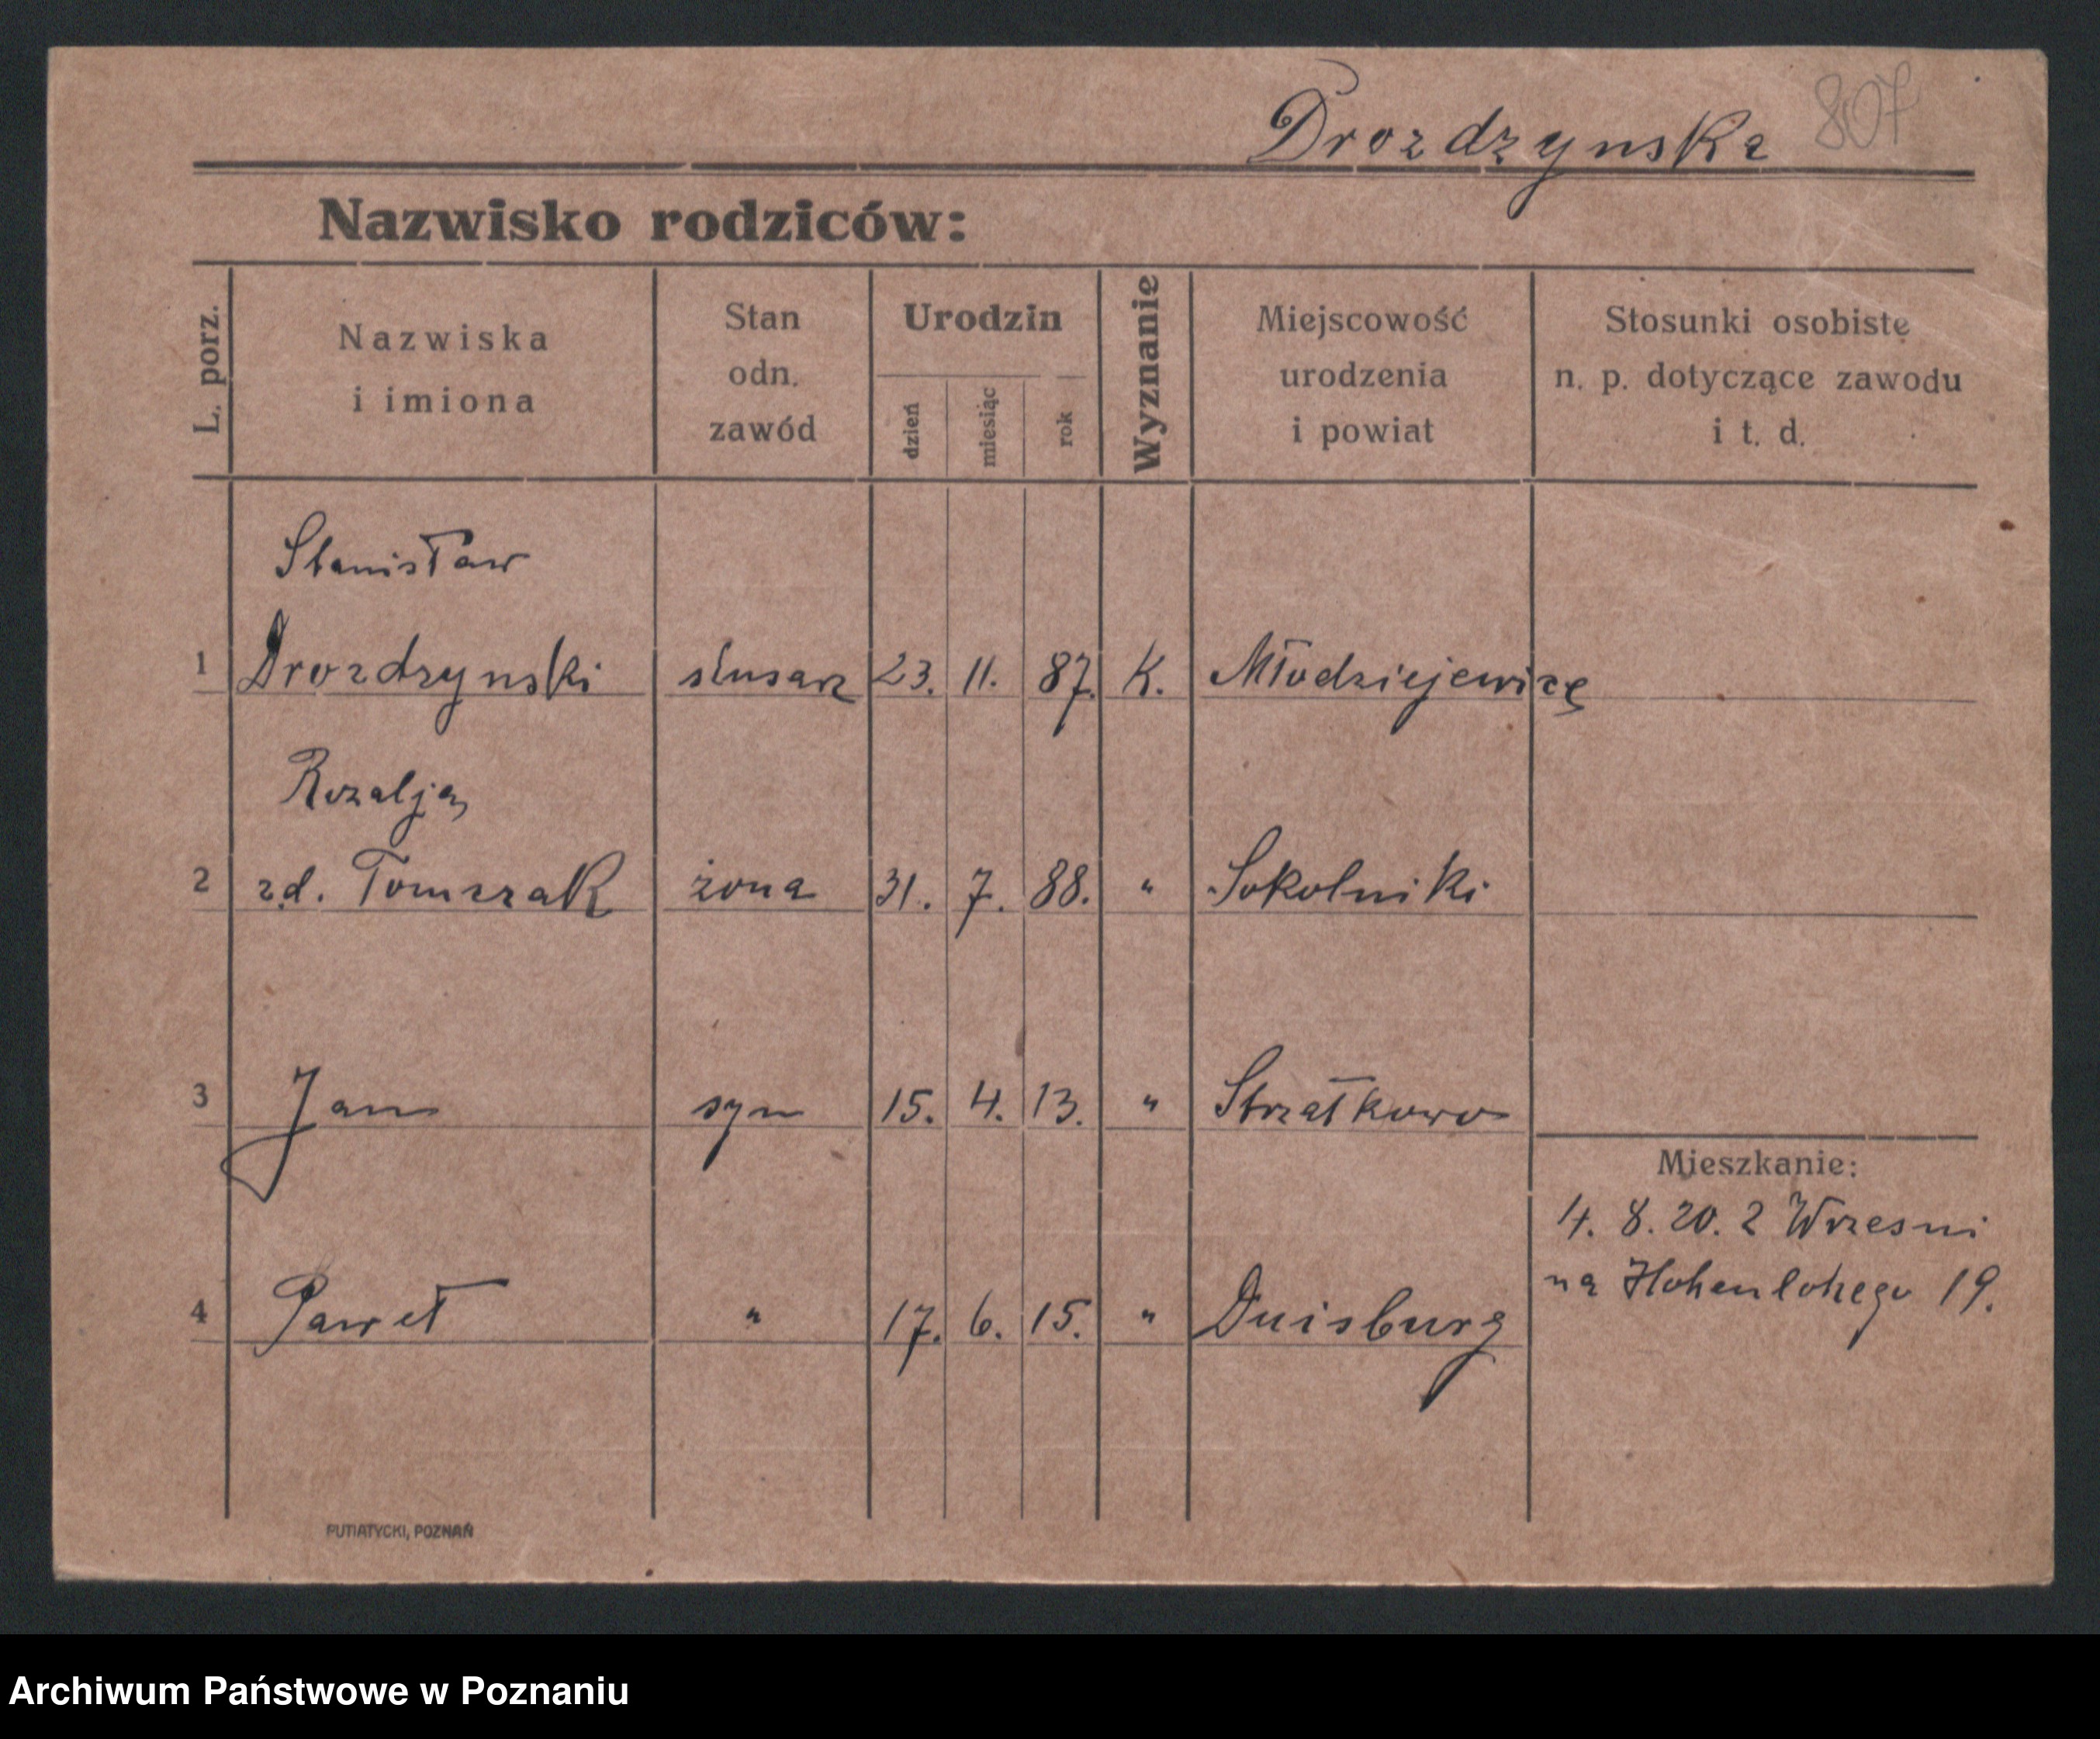 Drozdzynska 807
Nazwisko rodziców:
L. porz.
Nazwiska
i imiona
Stan
odn.
zawód
Urodzin
dzień
miesiąc
rok
Wyznanie
Miejscowość
urodzenia
i powiat
Stosunki osobiste
n. p. dotyczące zawodu
i t. d.
Stanisław
1 Drozdzynski ślusarz 23. 11. 87. K. Młodziejewice
Rozalja
2 zd. Tomrzak żona 31. 7. 88. " Sokolniki
3 Jan syn 15. 4. 13. " Strzałkowo
Mieszkanie:
4. 8. 20. z Wrzesni
na Hohenlohego 19.
4 Paweł " 17. 6. 15. " Duisburg
PUTIATYCKI, POZNAŃ
Archiwum Państwowe w Poznaniu